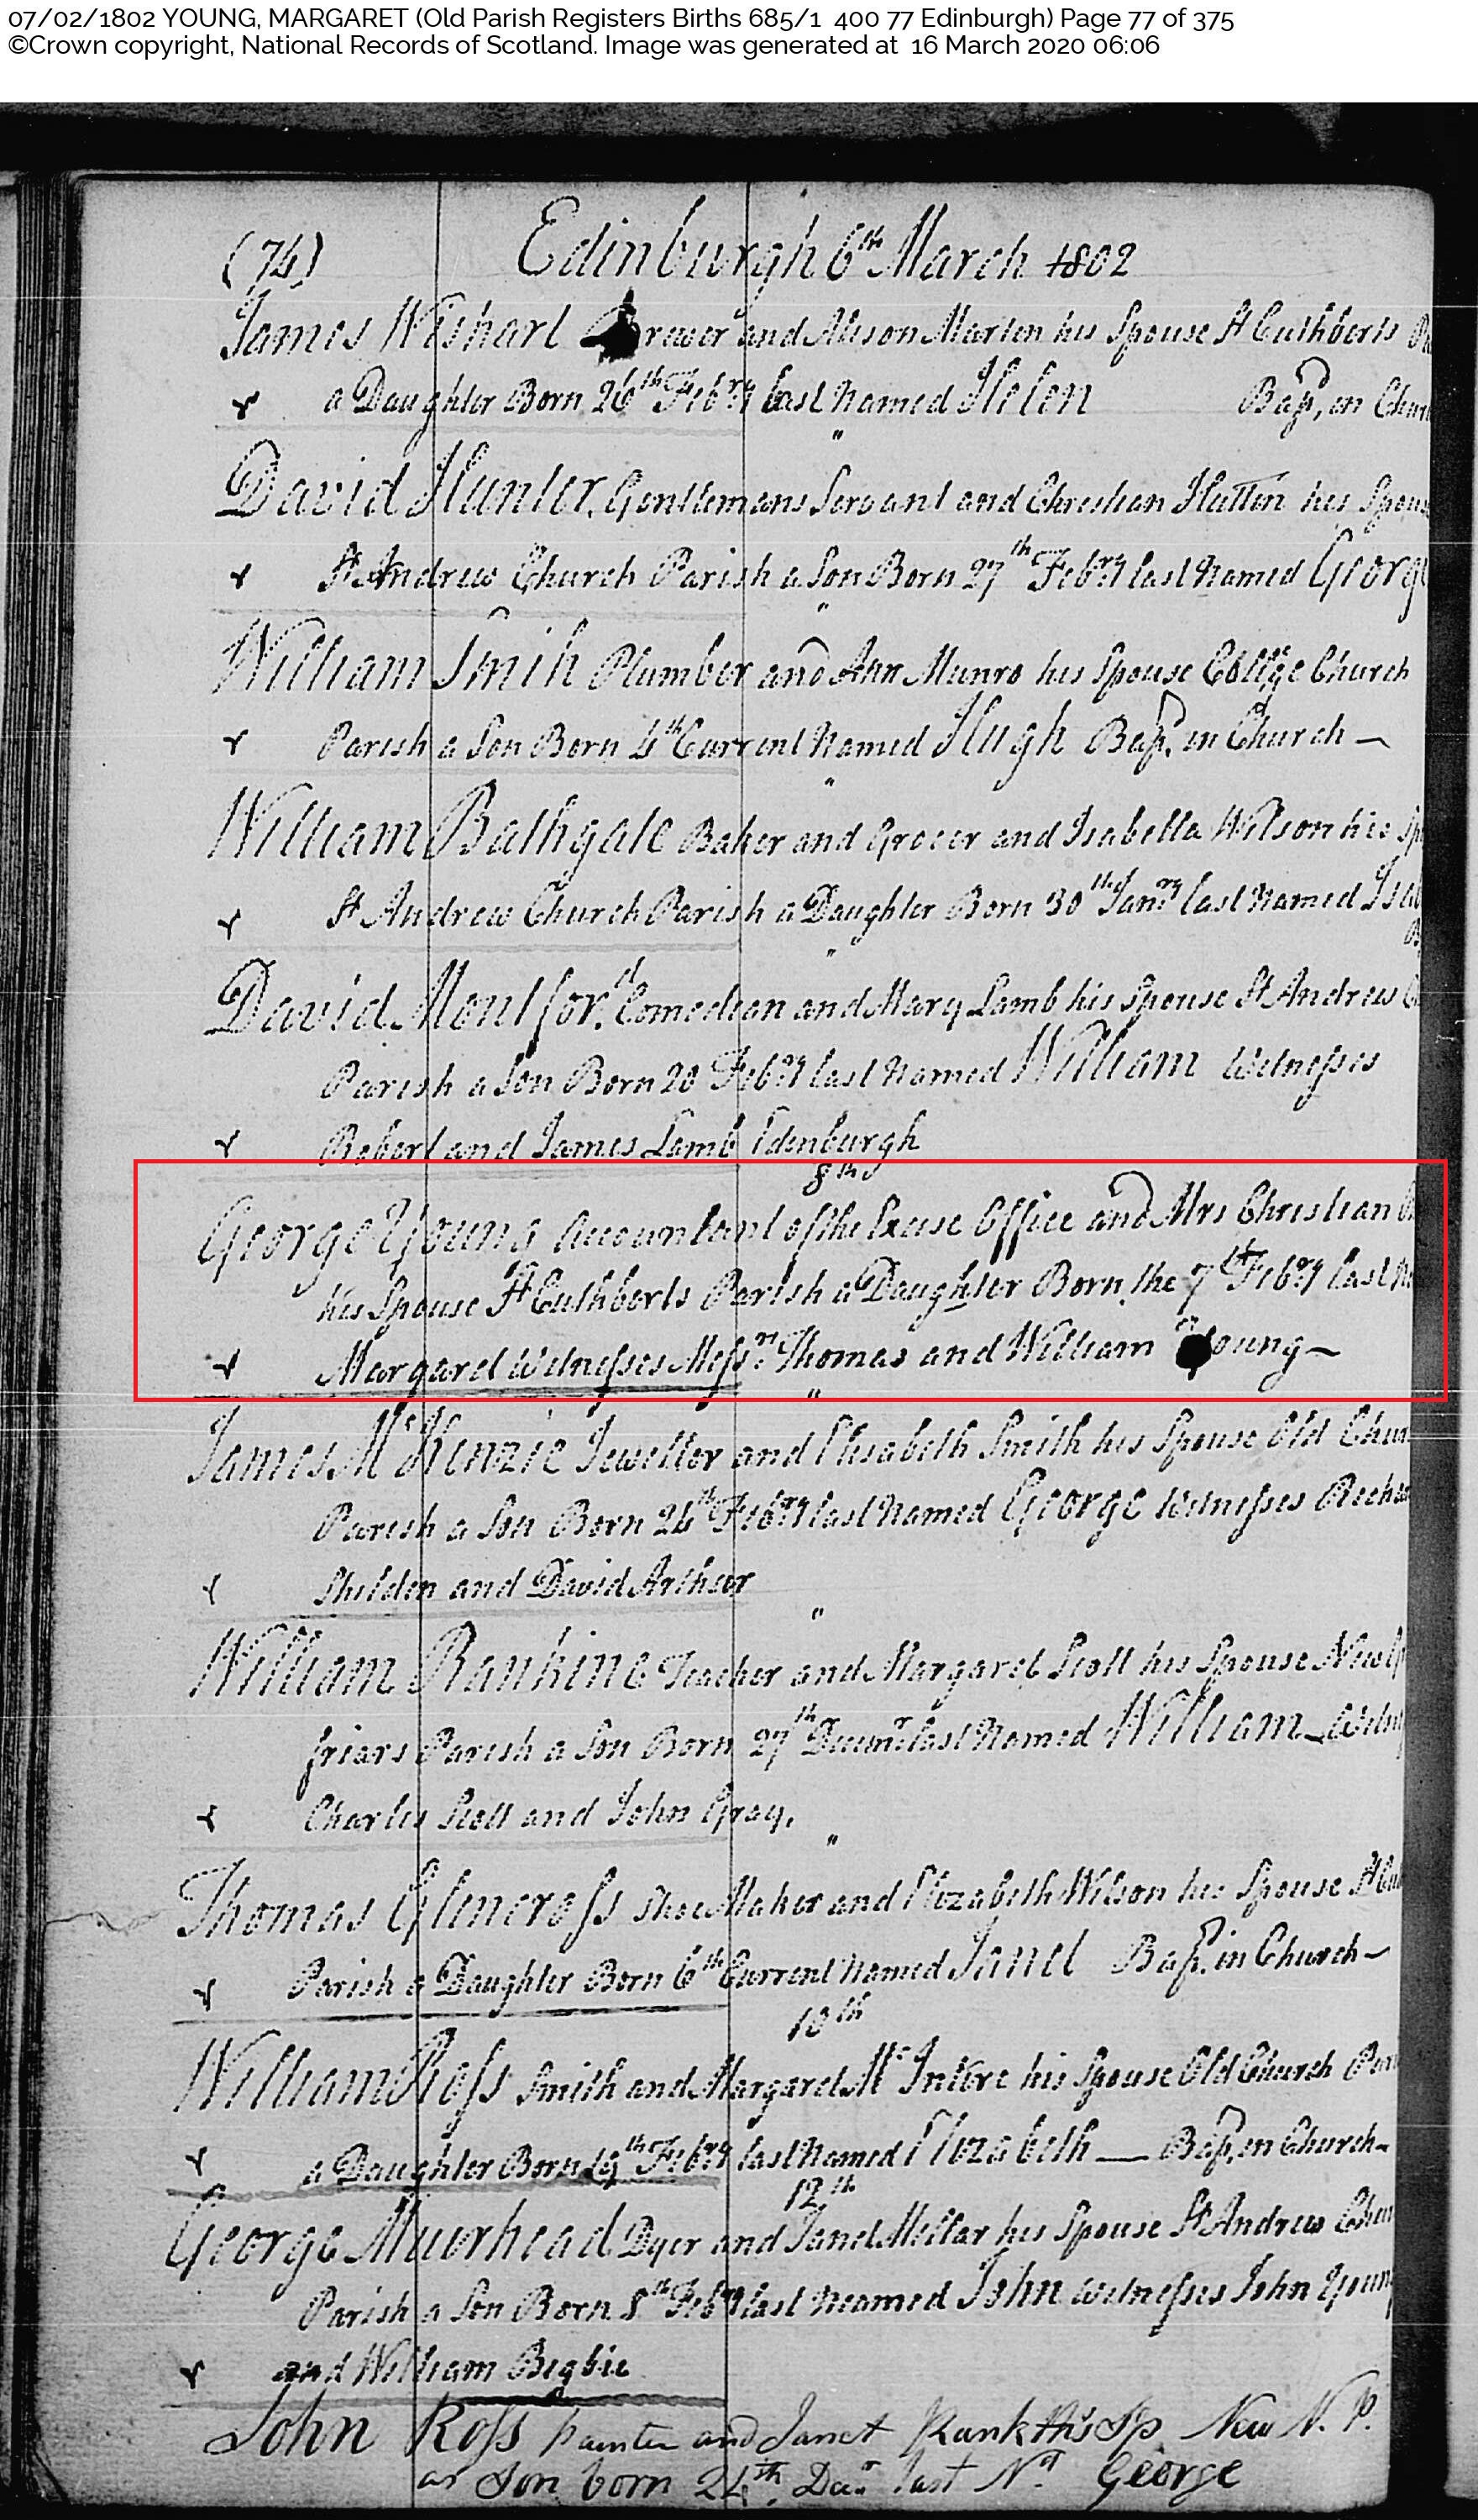 07/02/1802 YOUNG, MARGARET (Old Parish Registers Births 685/1 400 77 Edinburgh) Page 77 of 375
©Crown copyright, National Records of Scotland. Image was generated at 16 March 2020 06:06
(74) Edinburgh 6th March 1802
James Wishart Brewer and Alison Marten his Spouse St Cuthberts
a Daughter Born 26th Febry last Named Helen Bap. in
"
David Hunter. Gentlemans Servant and Christian Hutton his
St Andrew Church Parish a Son Born 27th Febry last Named
"
William Smith Plumber and Ann Munro his Spouse College Church
Parish a Son Born 4th Current Named Hugh Bap. in Church —
"
William Bathgate Baker and Grocer and Isabella Wilson his
St Andrew Church Parish a Daughter Born 30th Janry last Named
"
David Montford. Comedian and Mary Lamb his Spouse St Andrew
Parish a Son Born 20 Febry last Named William Witnesses
Robert and James Lamb Edenburgh
8th
George Young Accountant of the Excise Office and Mrs Christian
his Spouse St Cuthberts Parish a Daughter Born the 7th Febry last
Margaret Witnesses Messrs Thomas and William Young —
"
James McKenzie Jeweller and Elisabeth Smith his Spouse Old
Parish a Son Born 24th Febry last Named George Witnesses
and David Arthur
"
William Rankine Teacher and Margaret Scott his Spouse
friars Parish a Son Born 27th Decemr last Named William —
Charles Scott and John Gray.
"
Thomas Glencross Shoe Maker and Elizabeth Wilson his Spouse
Parish a Daughter Born 6th Current Named Janet Bap. in Church —
10th
William Ross Smith and Margaret McIntire his Spouse Old Church
a Daughter Born 19th Febry last Named Elizabeth — Bap. in Church —
12th
George Muirhead Dyer and Janet Mellar his Spouse St Andrew
Parish a Son Born 8th Febry last Neamed John Witnesses John
and William Begbie
John Ross Painter and Janet his Sp New N. P.
a Son born 24th Decr last Nd George